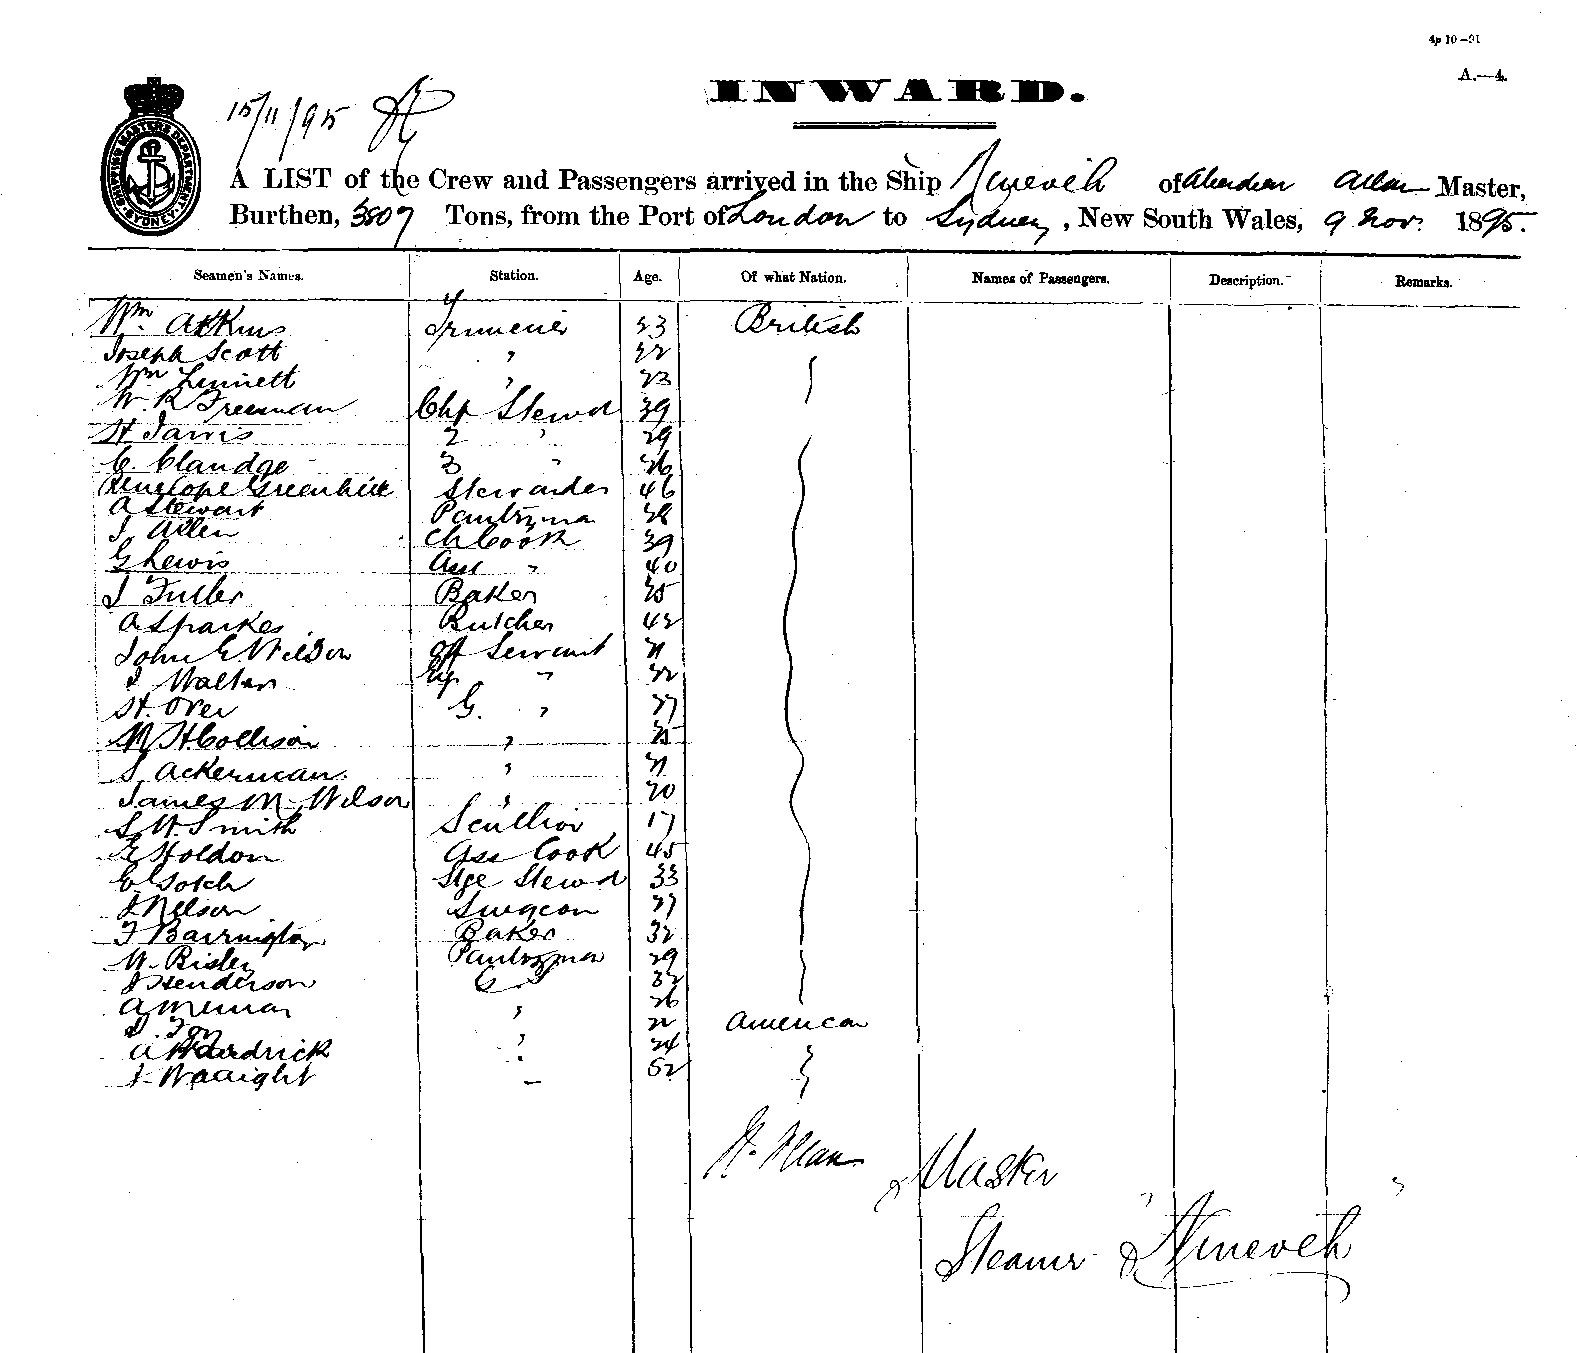 4p 10-91
A.—4.
INWARD.
15/11/95
SHIPPING MASTERS DEPARTMENT SYDNEY
A LIST of the Crew and Passengers arrived in the Ship Nineveh of Aberdeen Allan Master,
Burthen, 3807 Tons, from the Port of London to Sydney, New South Wales, 9 Nov. 1895.
Seamen's Names. Station. Age. Of what Nation. Names of Passengers. Description. Remarks.
Wm Atkins 23 British
Joseph Scott " 22
Wm Linnett " 23
W. R Freeman Chf Stewd 39
H Jarvis 2 " 29
C. Claridge 3 " 26
Penelope Greenhill Stewardes 46
A Stewart Pantryma 28
J Allen Ch Cook 39
G Lewis Ass " 40
J Fuller Baker 25
A Sparkes Butcher 42
John G Wilson Off Servant 21
J Walter " 22
H. Over G. " 27
W H Collison " 25
S Ackerman "  21
James M Wilson " 20
S H. Smith Scullion 17
E Holdon Ass Cook 45
E Gotch Stge Stewd 33
J Nelson Surgeon 27
F Barrington Baker 32
W. Pantryma 29
J Henderson 32
A " 26
22 American
A Hardrick " 24
J Waaight 52
H. Allan Master
Steamer "Nineveh"